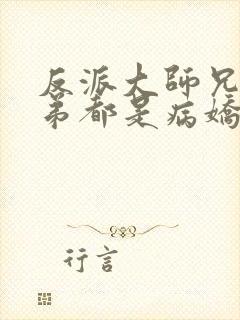 反派大師兄
弟都是病嬌
行言